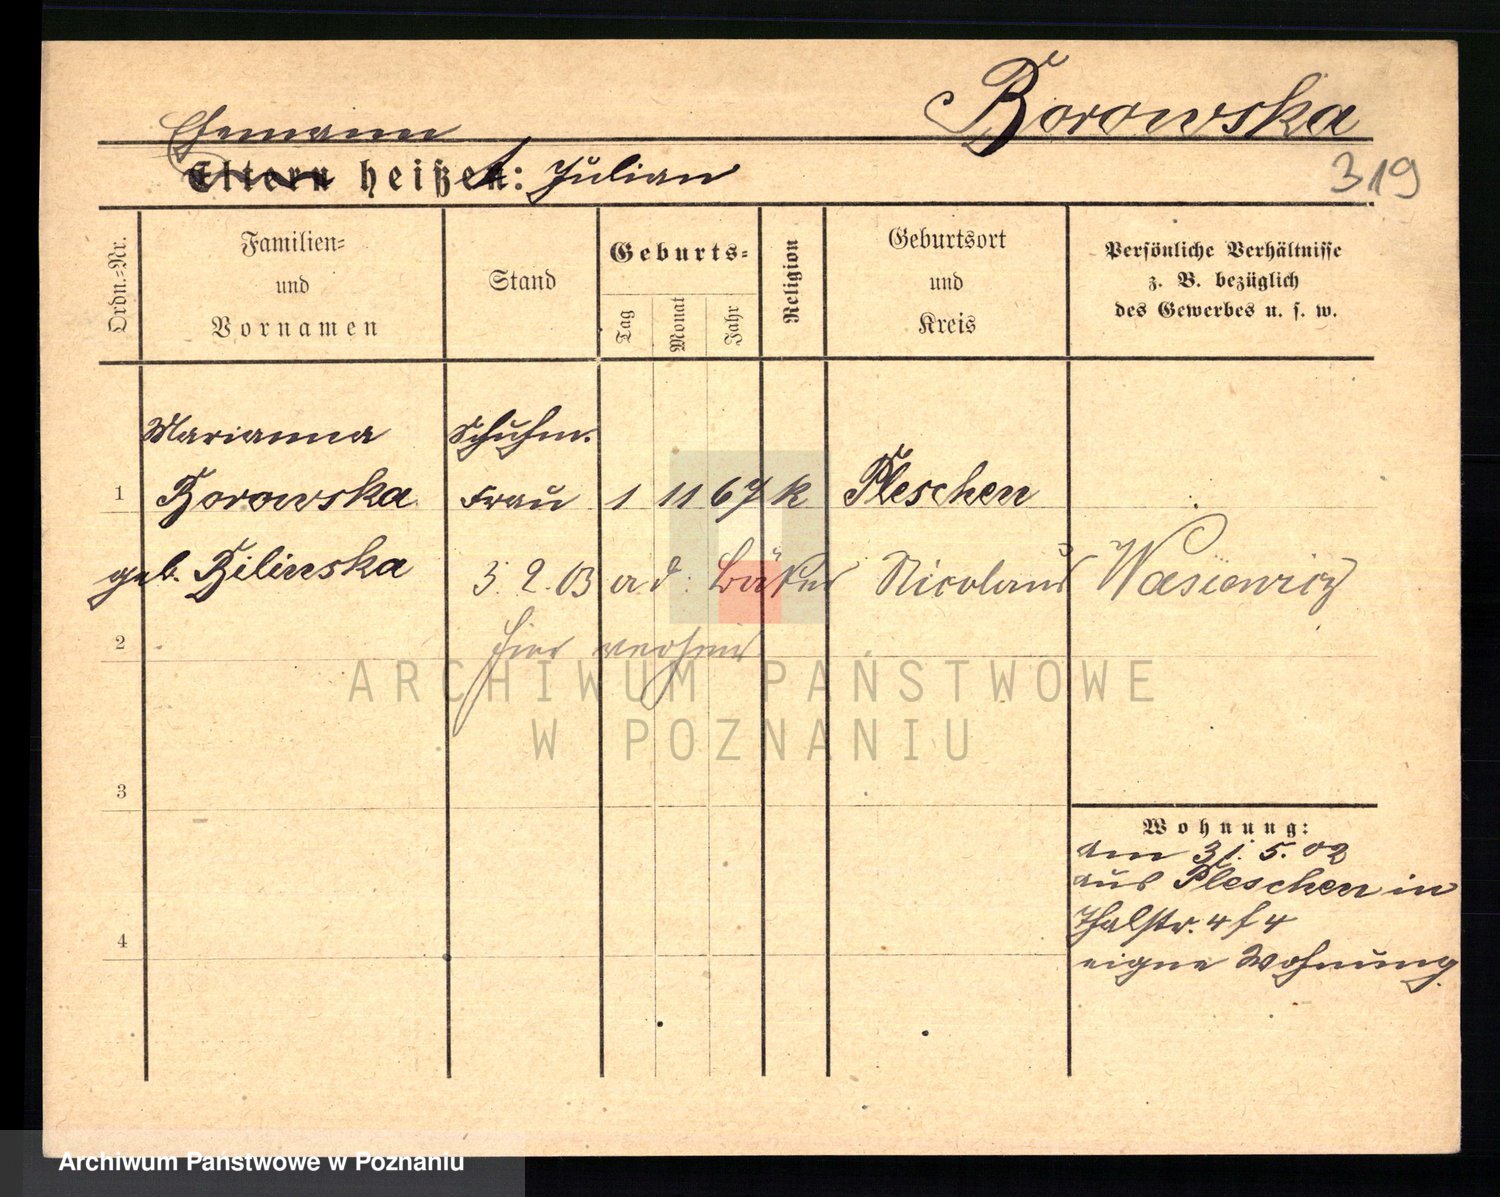 Borowska
Ehemann
Eltern heißen: Julian
319
Ordn.-Nr.
Familien-
und
Vornamen
Stand
Geburts-
Tag
Monat
Jahr
Religion
Geburtsort
und
Kreis
Persönliche Verhältnisse
z. B. bezüglich
des Gewerbes u. s. w.
Marianna Schuhm.
1 Borowska Frau 1 11 67 k Pleschen
geb. Bilinska 3. 2. 03 a. d. Bäcker Nicolaus Wasiewicz
2 hier verheir
3
4
Wohnung:
am 31. 5. 02
aus Pleschen in
Thalstr. 4 f 4
eigne Wohnung.
ARCHIWUM PAŃSTWOWE
W POZNANIU
Archiwum Państwowe w Poznaniu